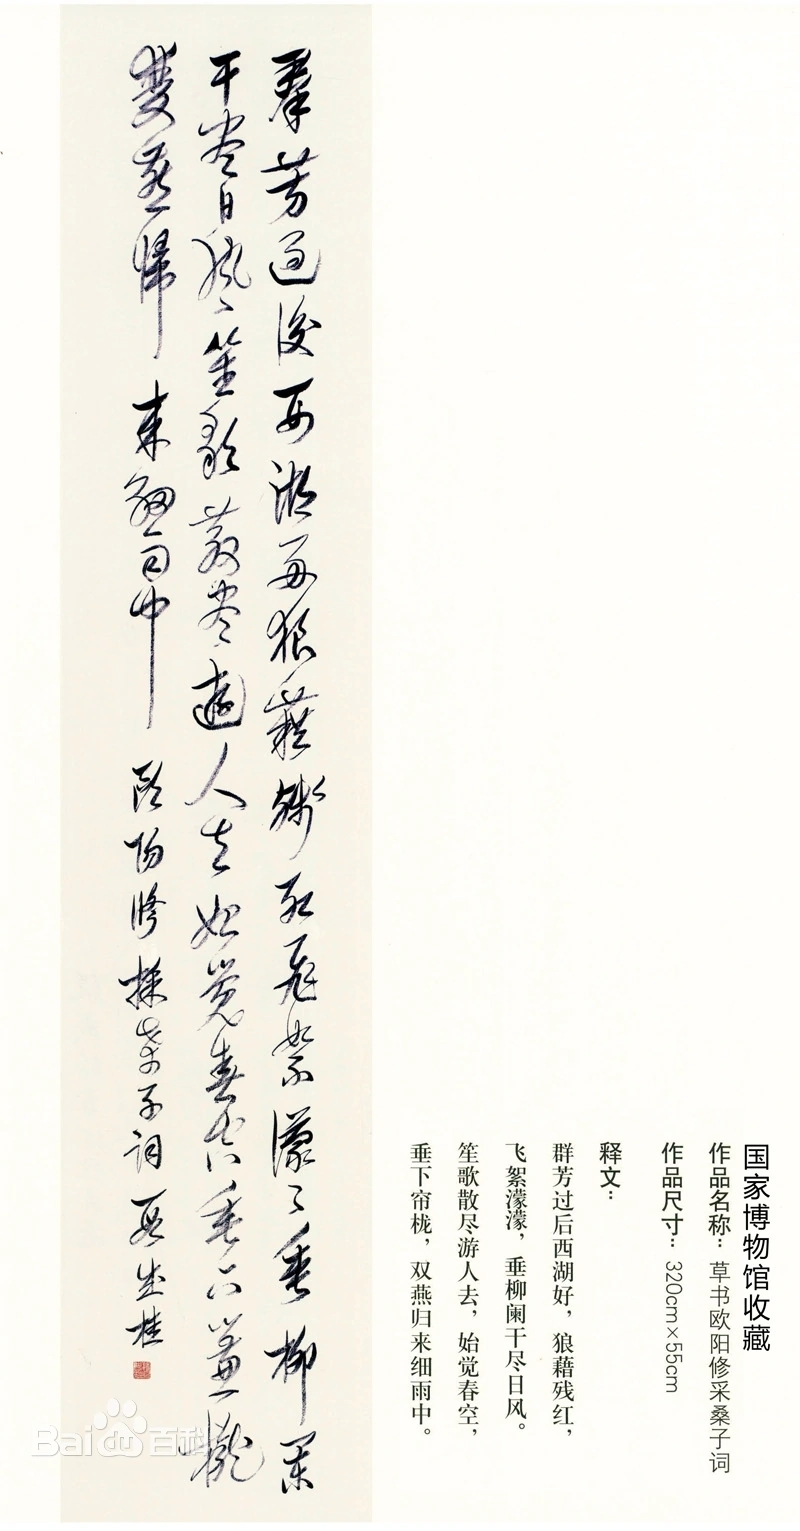 国家博物馆收藏
作品名称：草书欧阳修采桑子词
作品尺寸：320cm×55cm
释文：
群芳过后西湖好，狼藉残红，
飞絮濛濛，垂柳阑干尽日风。
笙歌散尽游人去，始觉春空，
垂下帘栊，双燕归来细雨中。
羣芳過後西湖好狼藉殘紅飛絮濛〻垂柳闌
干盡日風笙歌散盡遊人去始覺春空垂下簾櫳
雙燕歸來細雨中 歐陽修採桑子詞 段成桂
Bai百科